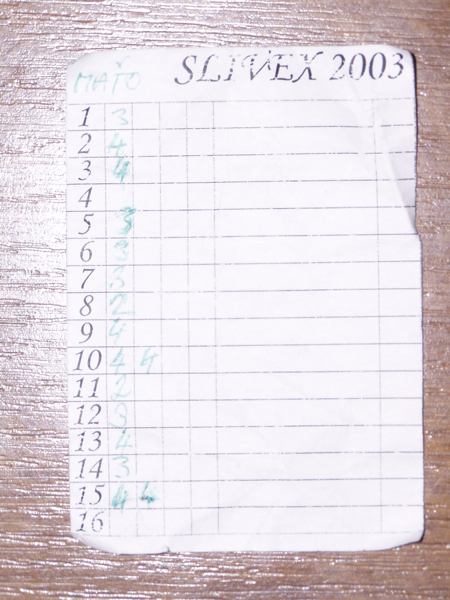 MAŤO SLIVEX 2003
1 3
2 4
3 4
4
5 3
6 3
7 3
8 2
9 4
10 4 4
11 2
12 3
13 4
14 3
15 4 4
16